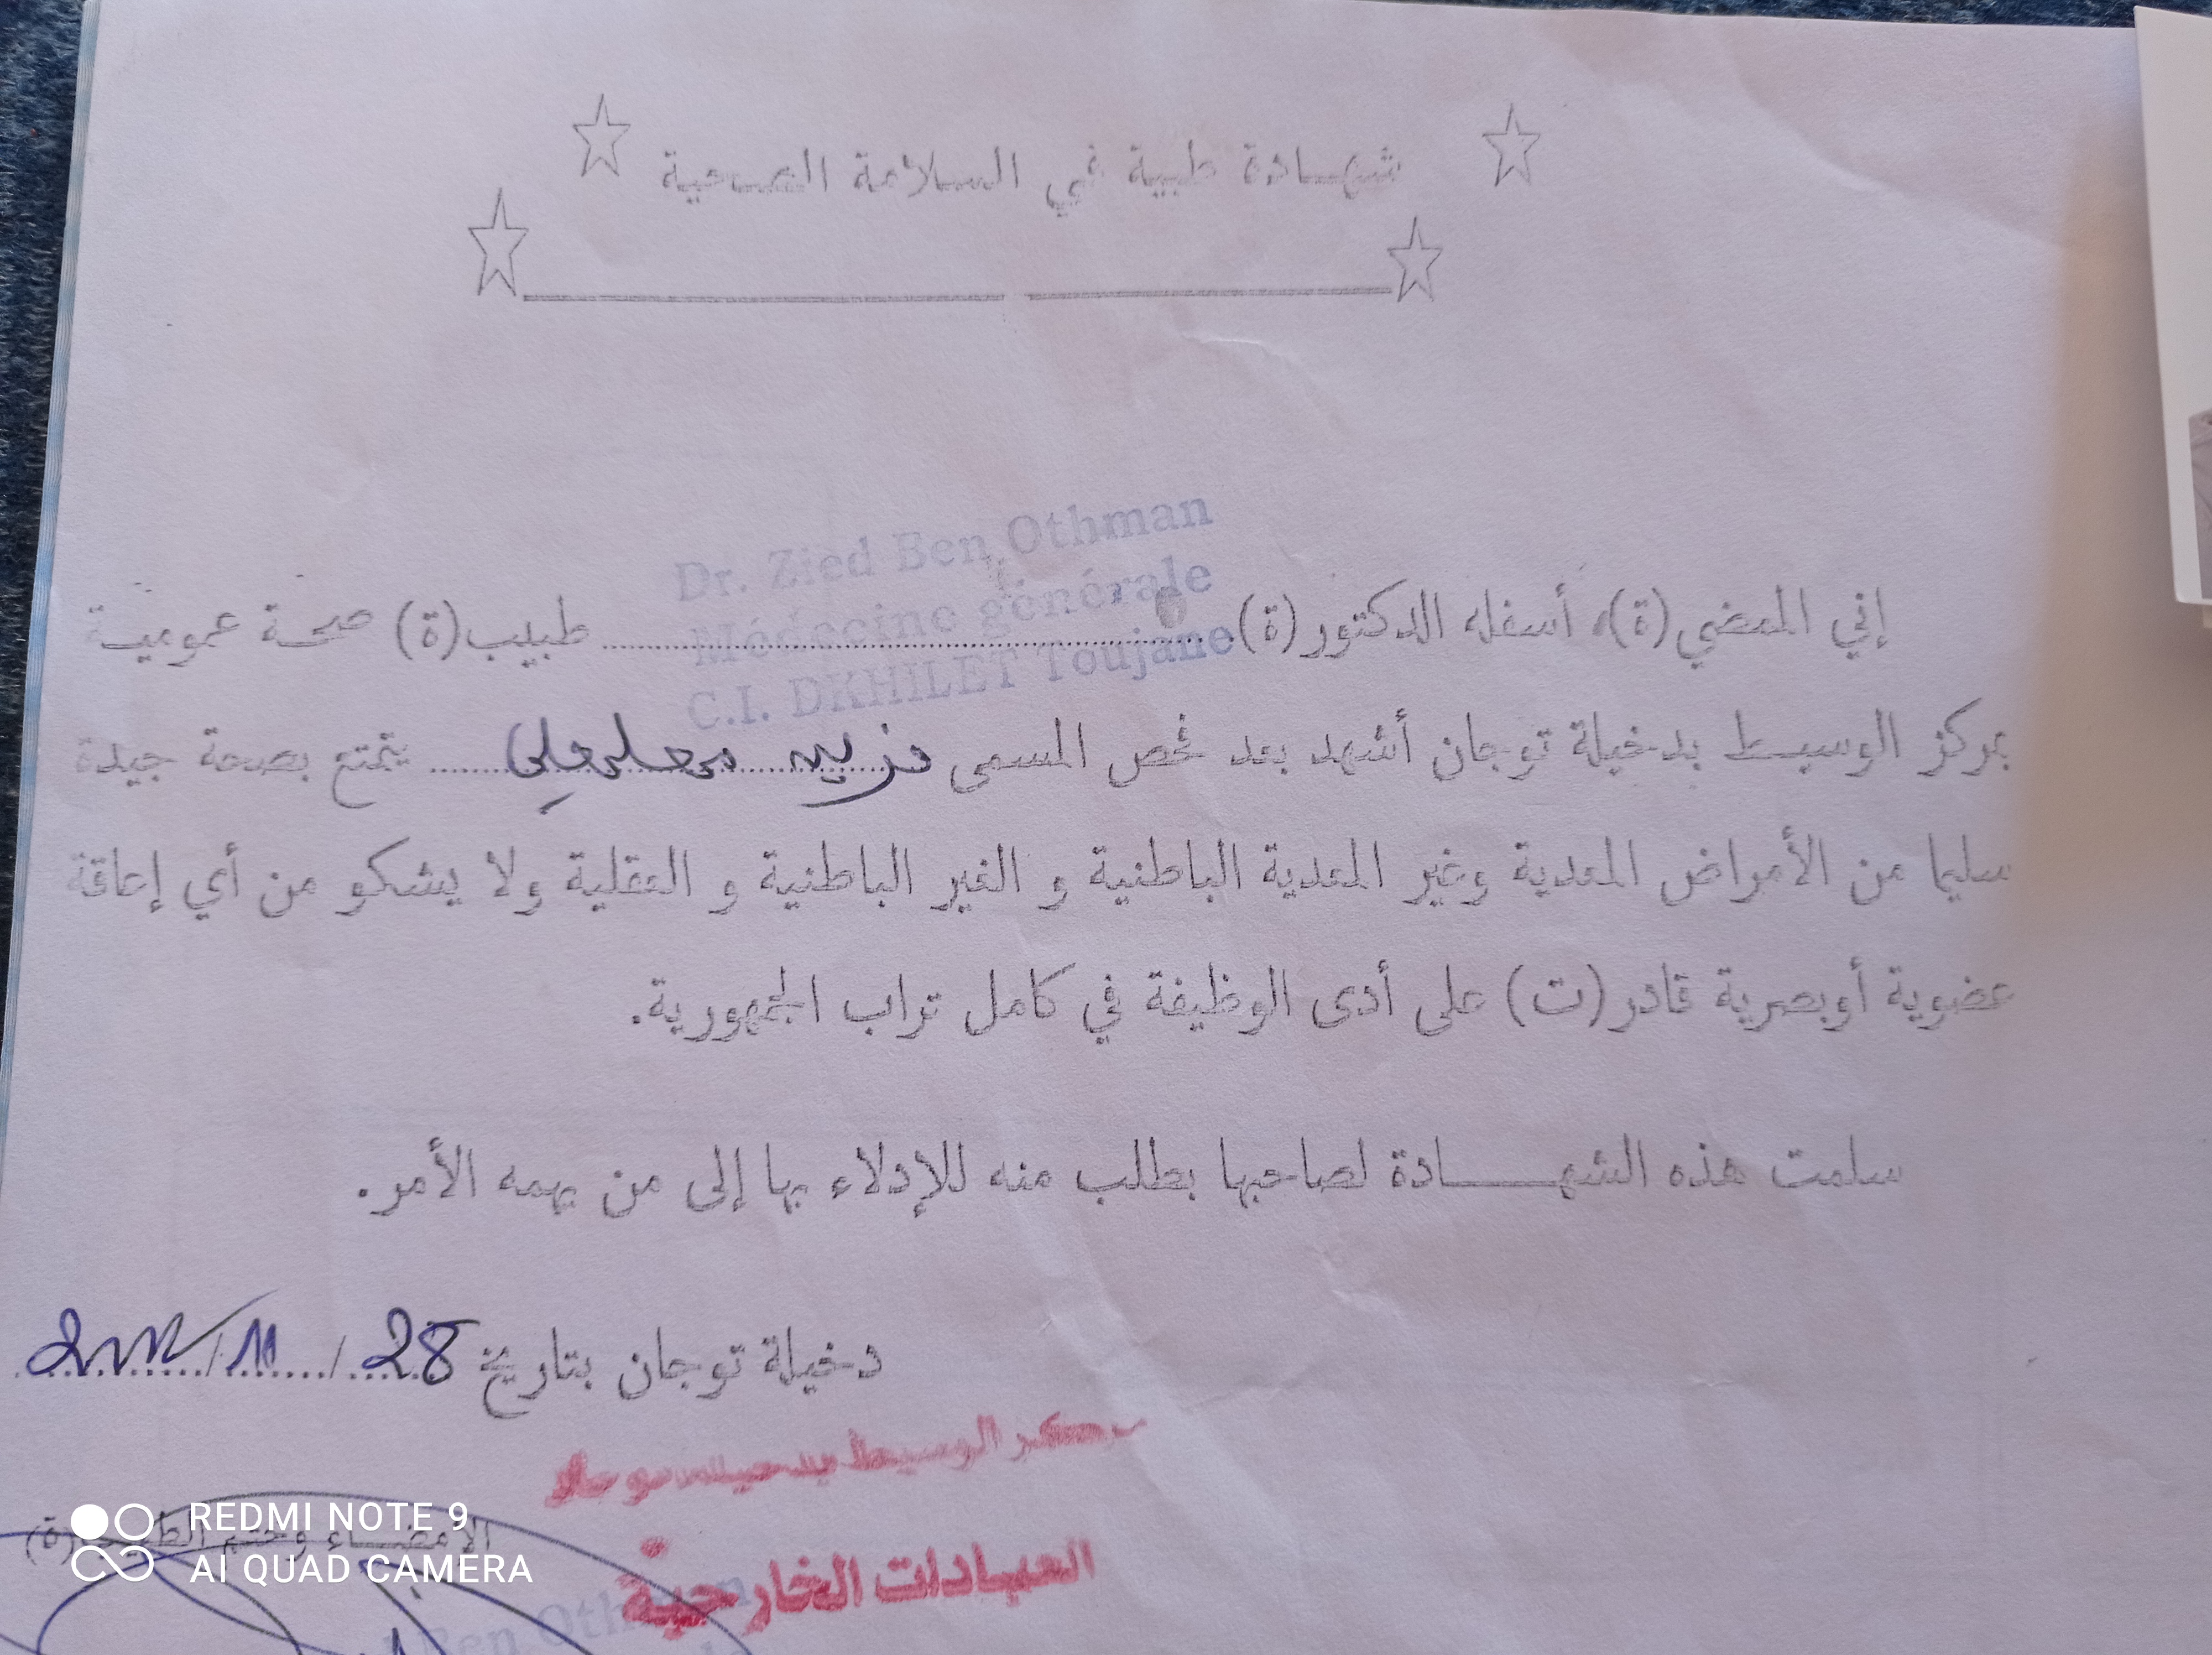 شهادة طبية في السلامة الصحية
Dr. Zied Ben Othman
Médecine générale
C.I. DKHILET Toujane
إني الممضي(ة)، أسفله الدكتور(ة) طبيب(ة) صحة عمومية
بمركز الوسيط بدخيلة توجان أشهد بعد فحص المسمى يتمتع بصحة جيدة
سليما من الأمراض المعدية وغير المعدية الباطنية و الغير الباطنية و العقلية ولا يشكو من أي إعاقة
عضوية أوبصرية قادر(ت) على أدى الوظيفة في كامل تراب الجمهورية.
سلمت هذه الشهــــادة لصاحبها بطلب منه للإدلاء بها إلى من يهمه الأمر.
دخيلة توجان بتاريخ 28 / 11 /
مركز الوسيط بدخيلة توجان
العيادات الخارجية
الإمضــاء وختم الطبيب(ة)
Ben Othman
REDMI NOTE 9
AI QUAD CAMERA